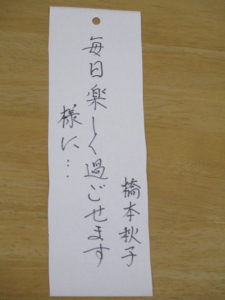 毎日楽しく過ごせます
様に…
橋本秋子